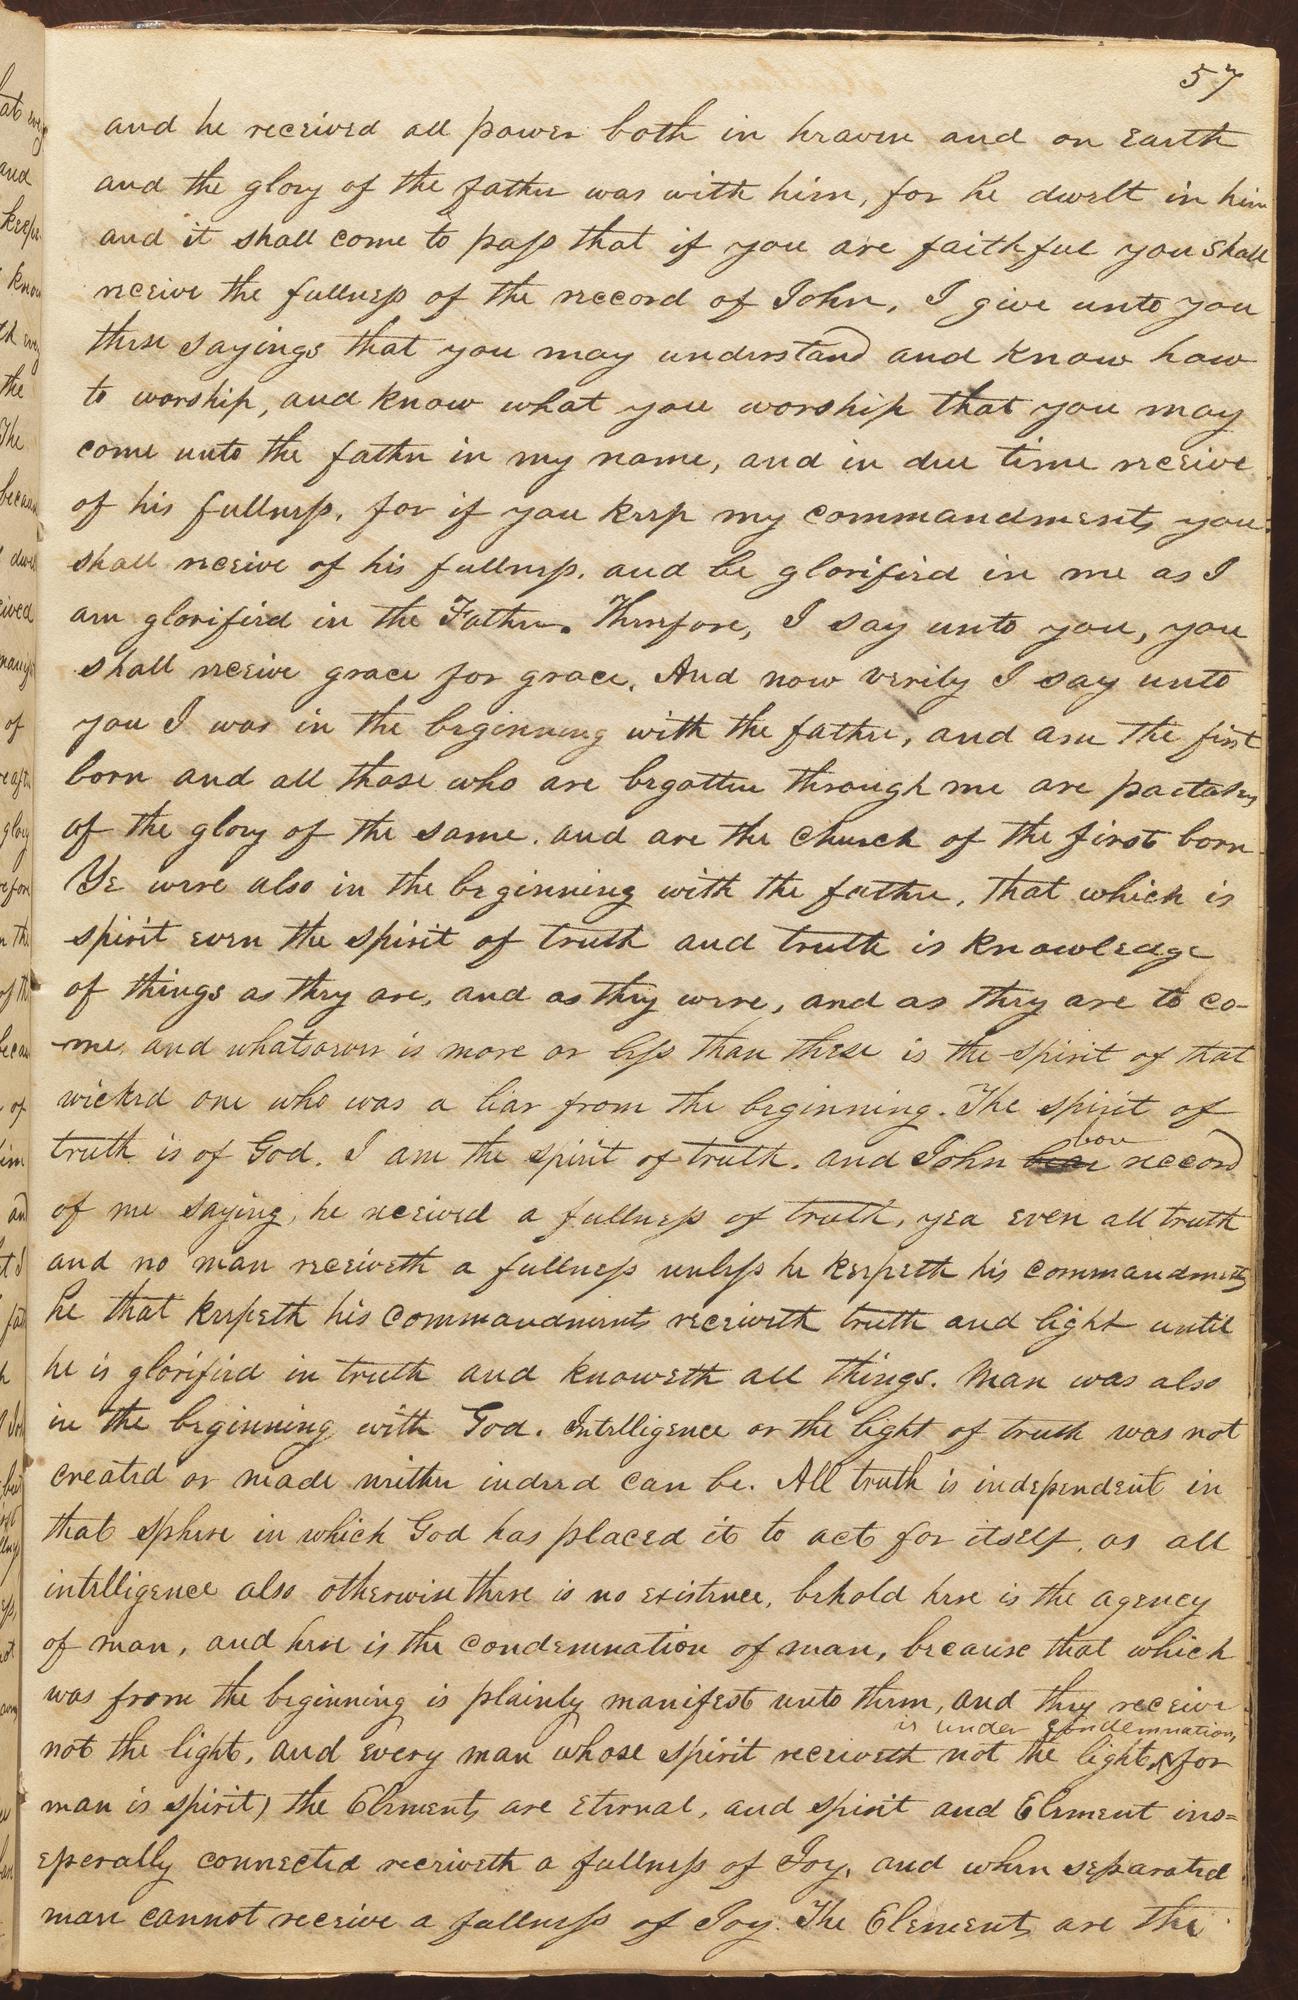 57
and he received all power both in heaven and on Earth
and the glory of the father was with him, for he dwelt in him
and it shall come to pass that if you are faithful you shall
receive the fullness of the record of John, I give unto you
these sayings that you may understand and know how
to worship, and know what you worship that you may
come unto the father in my name, and in due time receive
of his fullness, for if you keep my commandments you
shall receive of his fullness. and be glorified in me as I
am glorified in the Father. Therefore, I say unto you, you
shall receive grace for grace. And now verily I say unto
you I was in the beginning with the father, and am the first
born and all those who are begotten through me are partakers
of the glory of the same. and are the church of the first born
Ye were also in the beginning with the father, that which is
spirit even the spirit of truth and truth is knowledge
of things as they are, and as they were, and as they are to co-
me, and whatsoever is more or less than these is the spirit of that
wicked one who was a liar from the beginning. The spirit of
truth is of God. I am the spirit of truth. and John bear bore record
of me saying, he received a fullness of truth, yea even all truth
and no man receiveth a fullness unless he keepeth his commandments
he that keepeth his commandments receiveth truth and light until
he is glorified in truth and knoweth all things. Man was also
in the beginning with God. Intelligence or the light of truth was not
created or made neither indeed can be. All truth is independent in
that sphere in which God has placed it to act for itself. as all
intelligence also otherwise there is no existence, behold here is the agency
of man, and here is the condemnation of man, because that which
was from the beginning is plainly manifest unto them, and they receive
is under condemnation,
not the light, and every man whose spirit receiveth not the light, ^ for
man is spirit) the Elements are Eternal, and spirit and Element ins=
eperally connected receiveth a fullness of Joy, and when separated
man cannot receive a fullness of Joy. The Elements are the